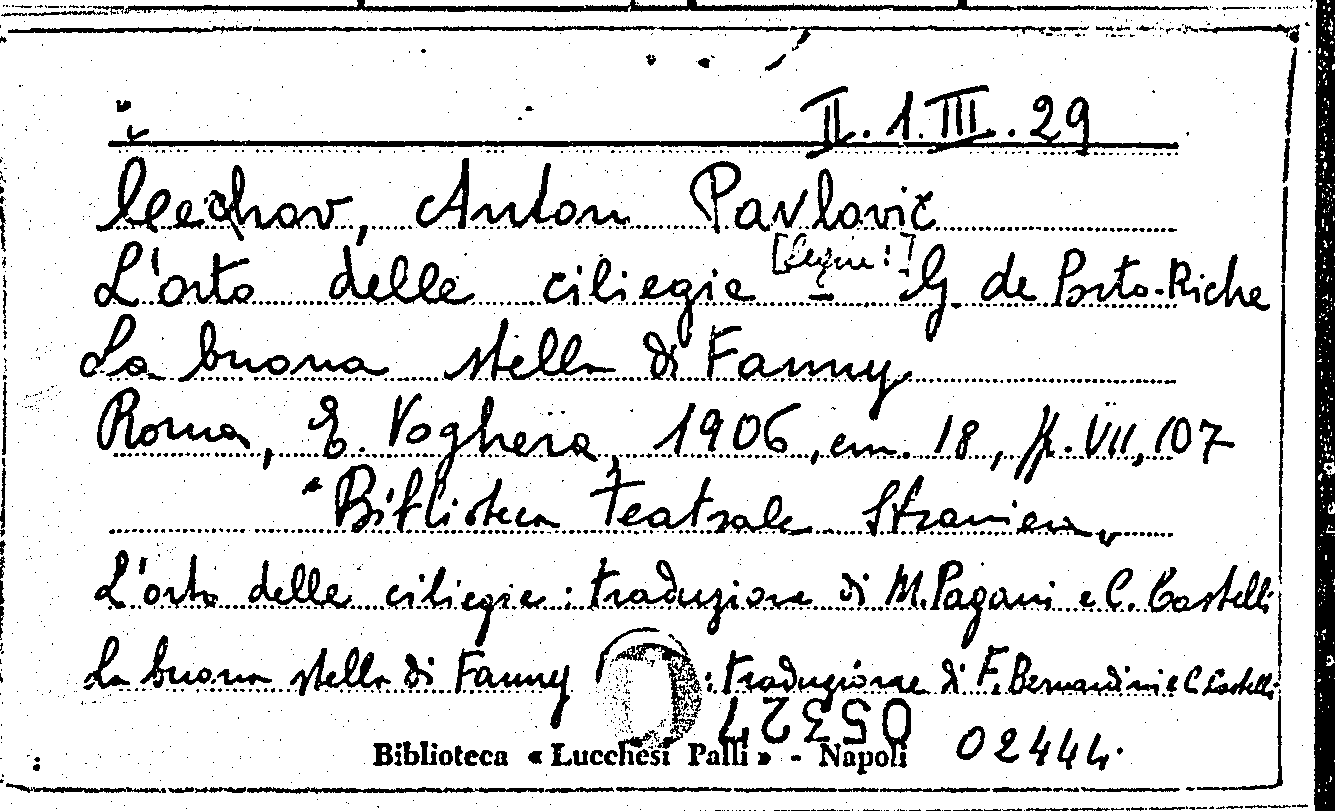 II. 1. III. 29
Čechov, Anton Pavlovič
L'orto delle ciliegie [segue:] - G. de Porto-Riche
La buona stella di Fanny
Roma, E. Voghera, 1906, cm. 18, pp. VII, 107
"Biblioteca Teatrale Straniera"
L'orto delle ciliegie : traduzione di M. Pagani e C. Castelli
La buona stella di Fanny : traduzione di F. Bernardini e C. Castelli
05327
Biblioteca « Lucchesi Palli » - Napoli 02444.